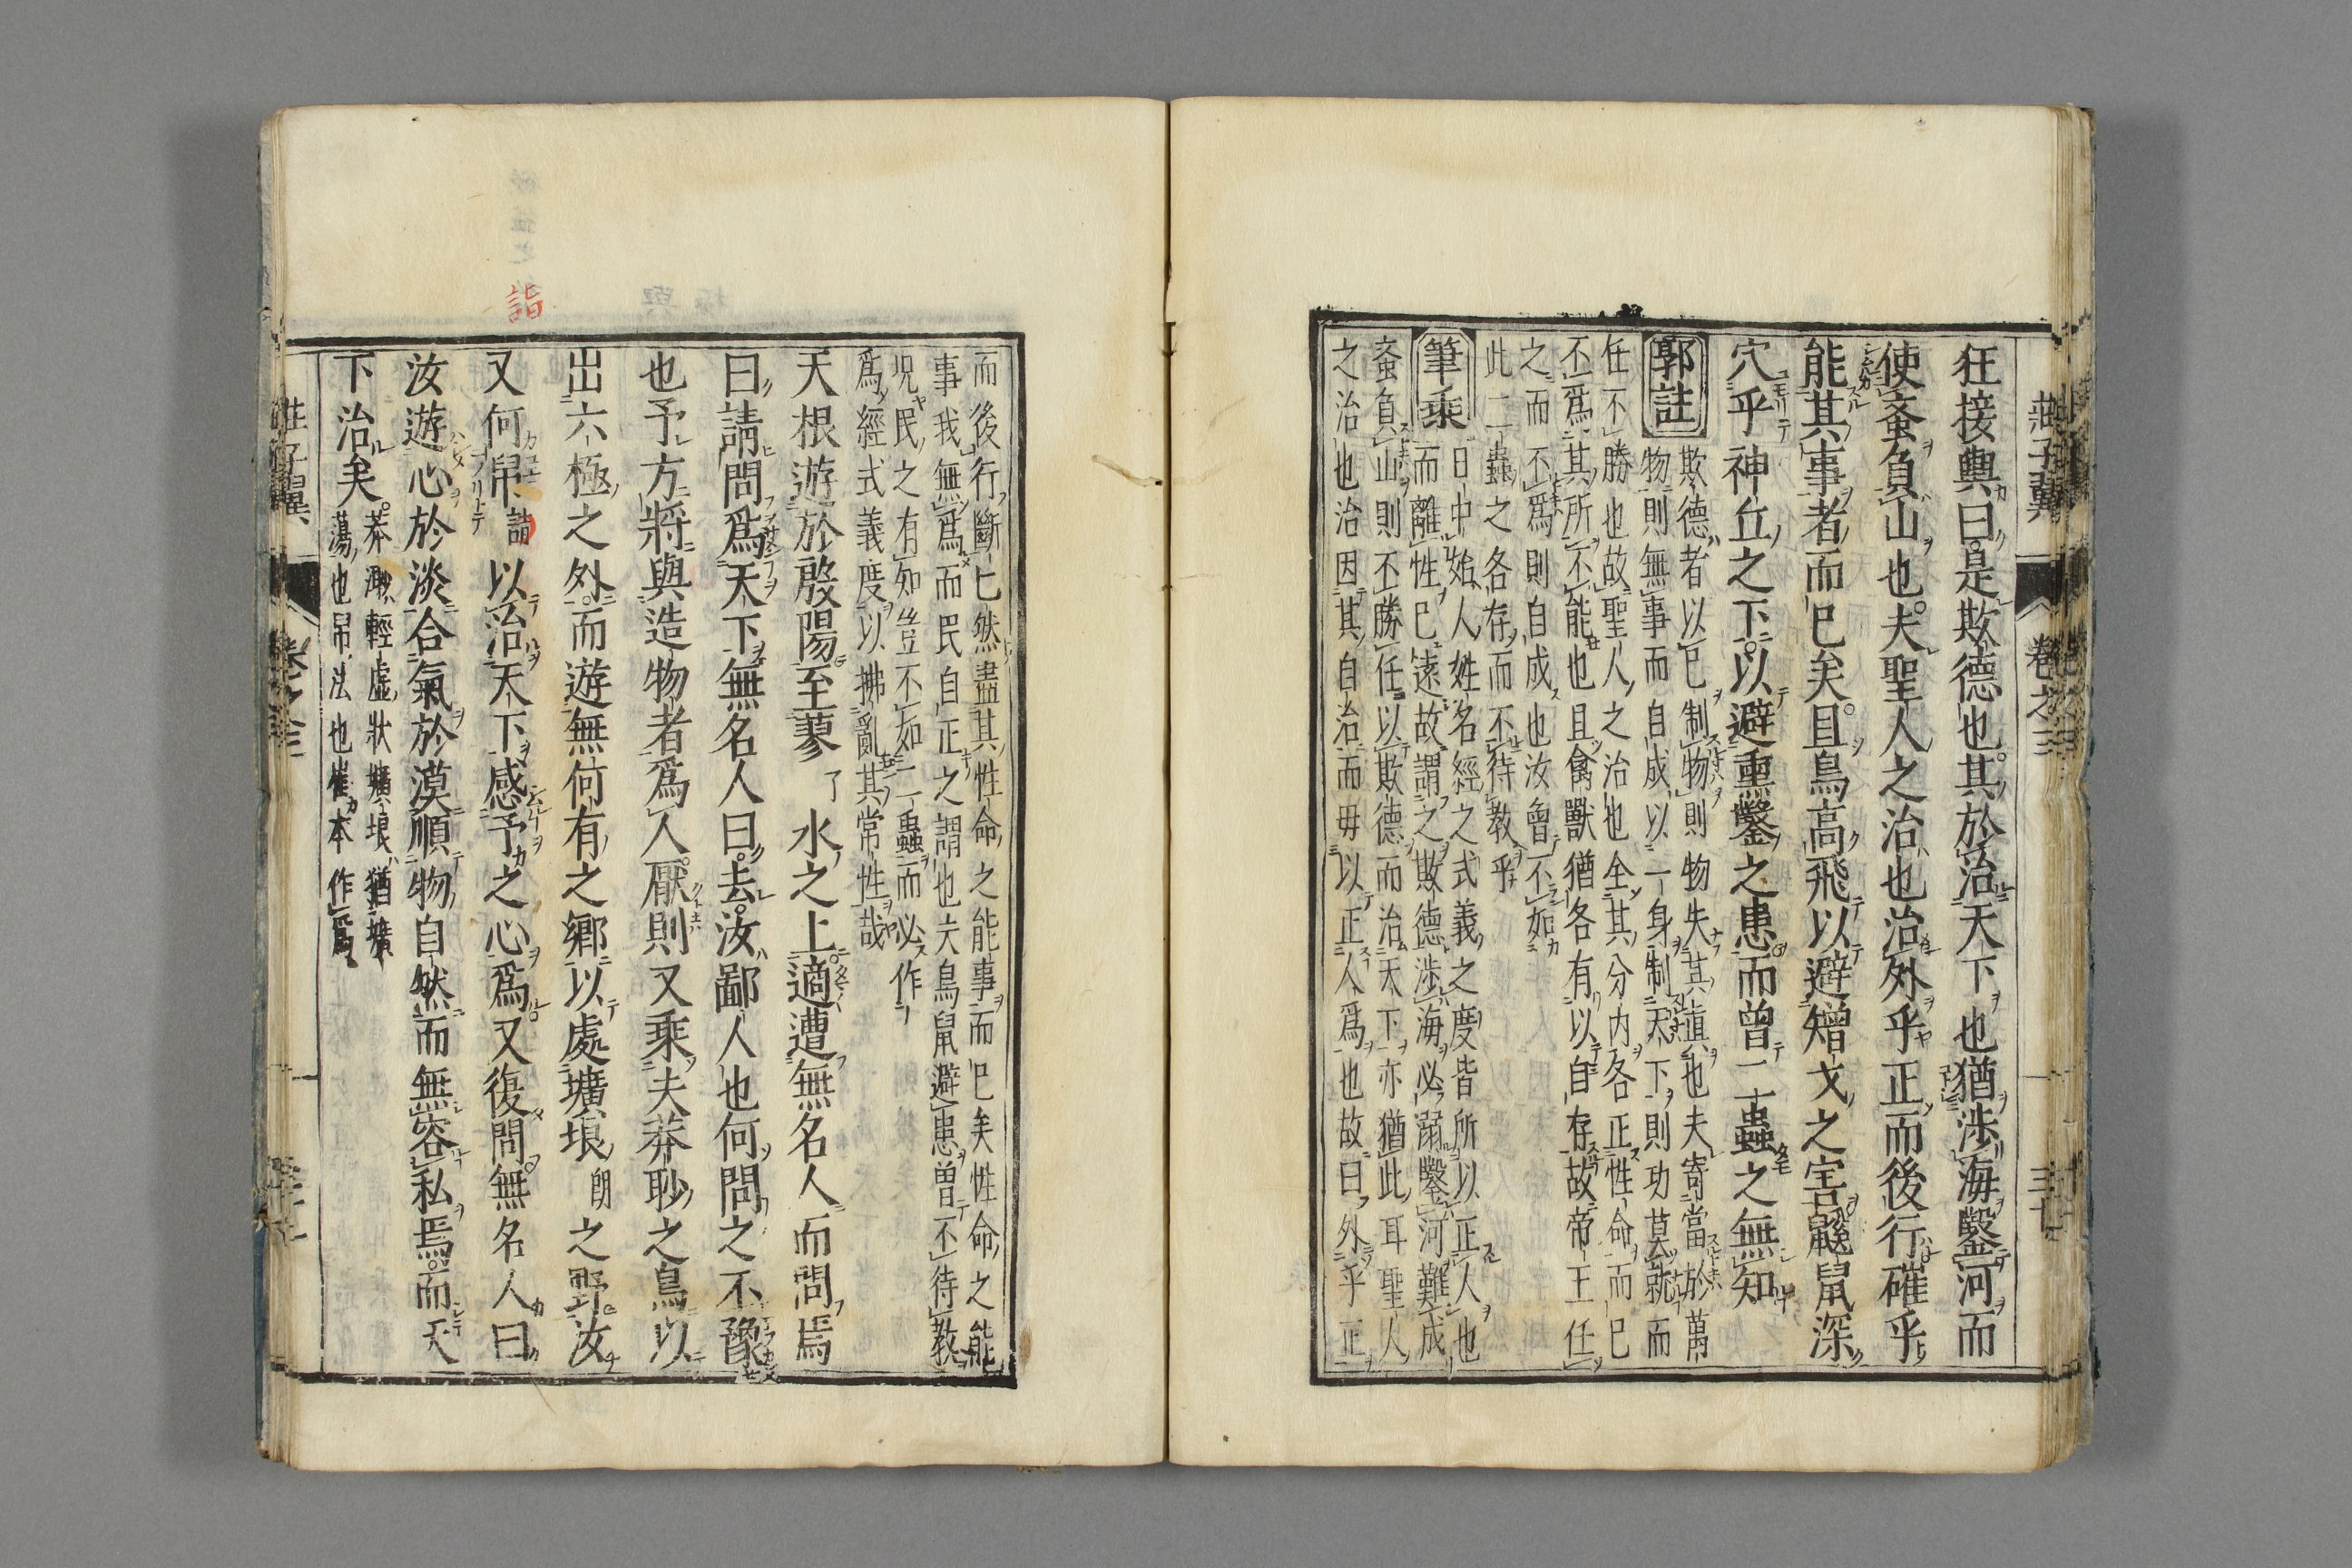 莊子翼 卷之三 三十七
狂接輿曰是欺德也其於治天下也猶涉海鑿河而
使蚉負山也夫聖人之治也治外乎正而後行確乎
能其事者而已矣且鳥高飛以避矰弋之害鼷鼠深
穴乎神丘之下以避熏鑿之患而曾二蟲之無知
郭註
欺德者以已制物則物失其真也夫寄當於萬
物則無事而自成以一身制天下則功莫就而
任不勝也故聖人之治也全其分内各正性命而已
不爲其所不能也且禽獸猶各有以自存故帝王任
之而不爲則自成也汝曾不如
此二蟲之各存而不待教乎
筆乘
日中始人姓名經之式義之度皆所以正人也
而離性已遠故謂之欺德涉海必溺鑿河難成
蚉負山則不勝任以欺德而治天下亦猶此耳聖人
之治也治因其自治而毋以正人爲也故曰外乎正
而後行斷已然盡其性命之能事而已矣性命之能
事我無爲而民自正之謂也夫鳥鼠避患曾不待教
況民之有知豈不如二蟲而必作
爲經式義度以拂亂其常性哉
天根遊於殷陽至蓼了水之上適遭無名人而問焉
曰請問爲天下無名人曰去汝鄙人也何問之不豫
也予方將與造物者爲人厭則又乘夫莽眇之鳥以
出六極之外而遊無何有之鄉以處壙埌朗之野汝
又何帠詣以治天下感予之心爲又復問無名人曰
汝遊心於淡合氣於漠順物自然而無容私焉而天
下治矣
莽渺輕虛狀壙埌猶壙
蕩也帠法也崔本作爲
詣
莊子翼 卷之三